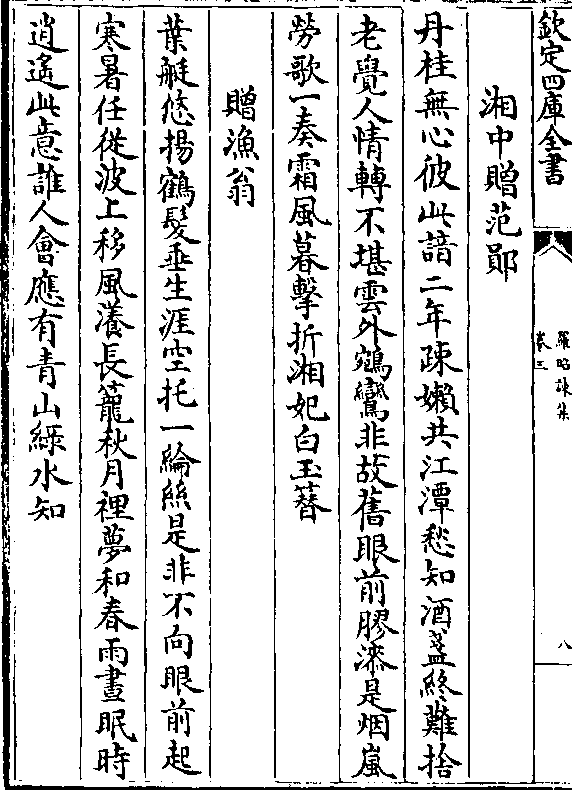 欽定四庫全書
羅昭諫集
卷三
八
湘中贈范鄖
丹桂無心彼此諳二年疎嬾共江潭愁知酒盞終難捨
老覺人情轉不堪雲外鵷鸞非故舊眼前膠漆是烟嵐
勞歌一奏霜風暮擊折湘妃白玉簪
贈漁翁
葉艇悠揚鶴髮垂生涯空托一綸絲是非不向眼前起
寒暑任從波上移風漾長籠秋月裡夢和春雨晝眠時
逍遙此意誰人會應有青山綠水知